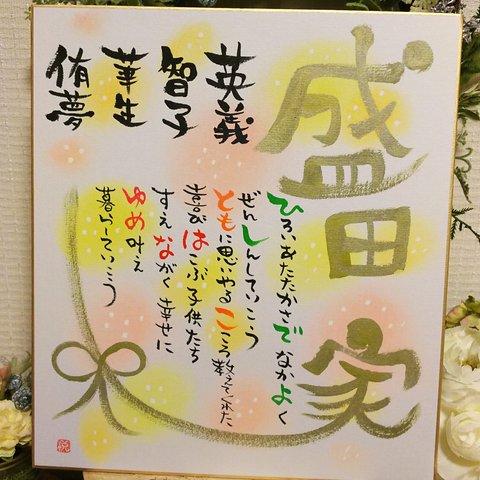 盛田家
英義
智子
華生
侑夢
ひろいあたたかさでなかよく
ぜんしんしていこう
ともに思いやるこころ教えてくれた
喜びはこぶ子供たち
すえながく幸せに
ゆめ叶え
暮らしていこう